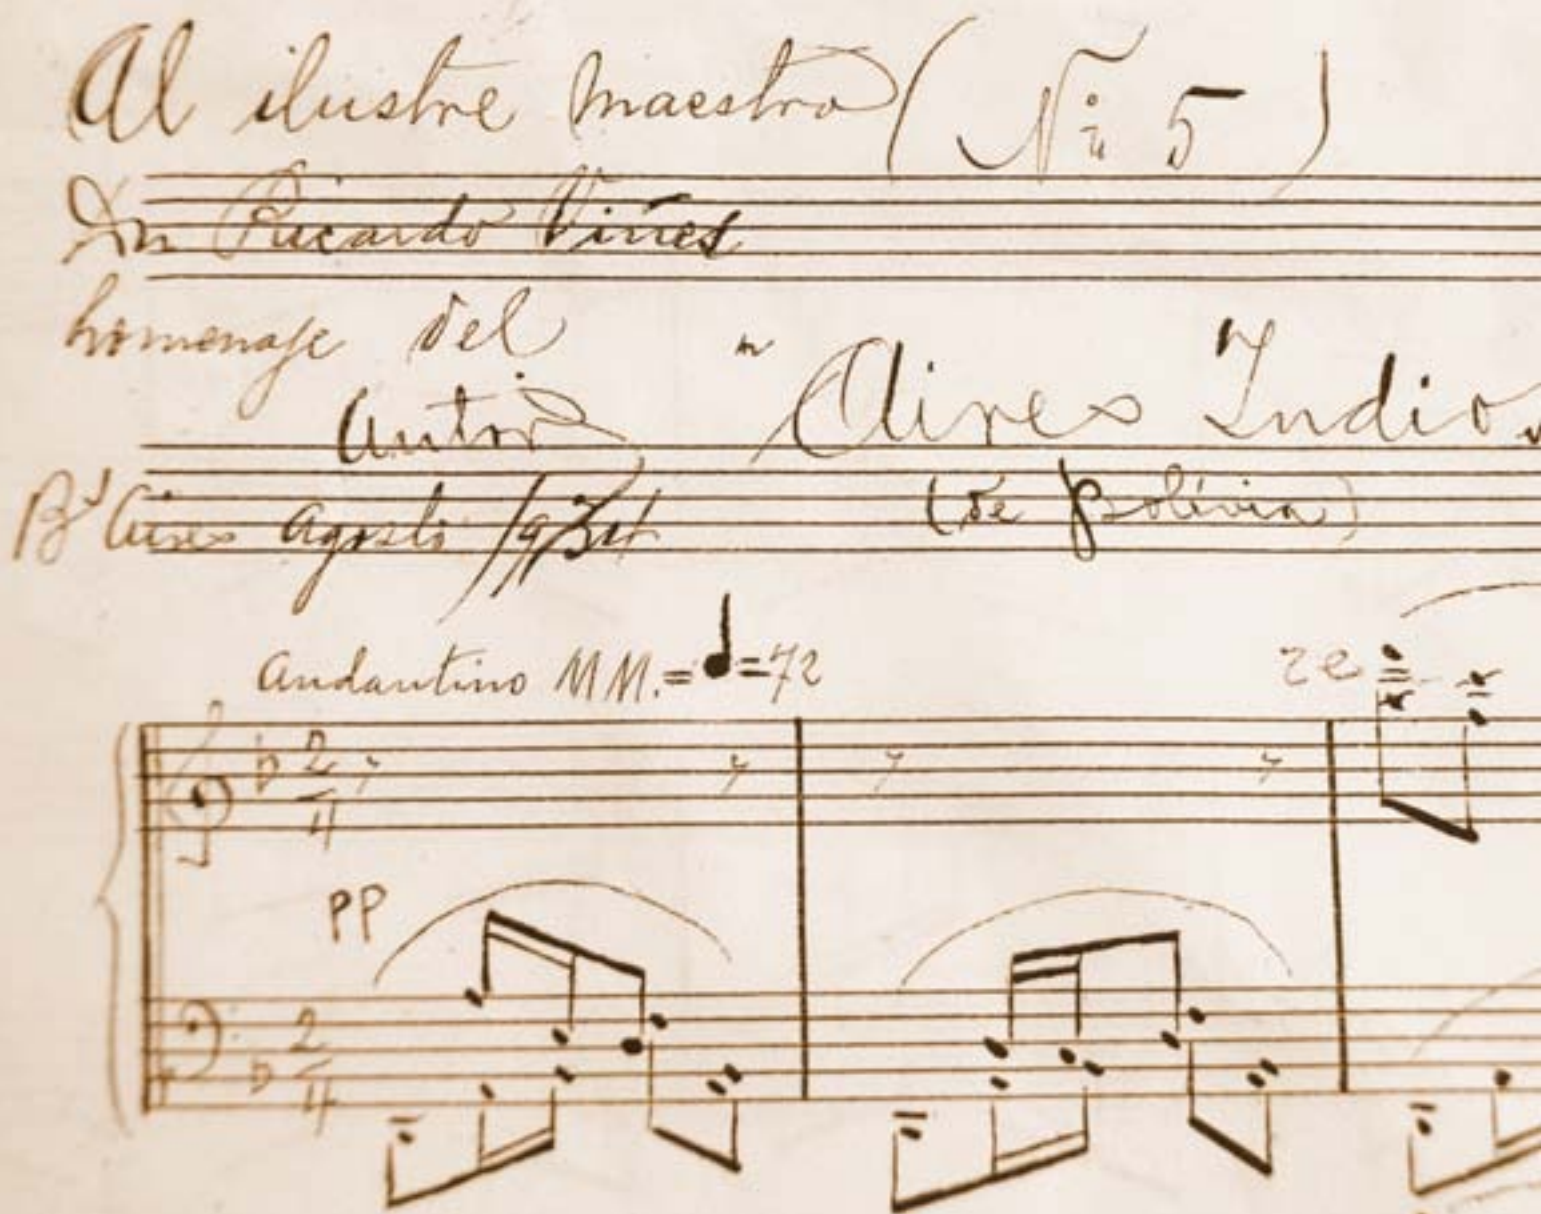 Al ilustre maestro (Nº 5)
Dn Ricardo Viñes
homenaje del
autor
"Aires Indios
(de Bolívia)
Bs Aires Agosto /934
Andantino MM.=♩=72
2
4
PP
2
4